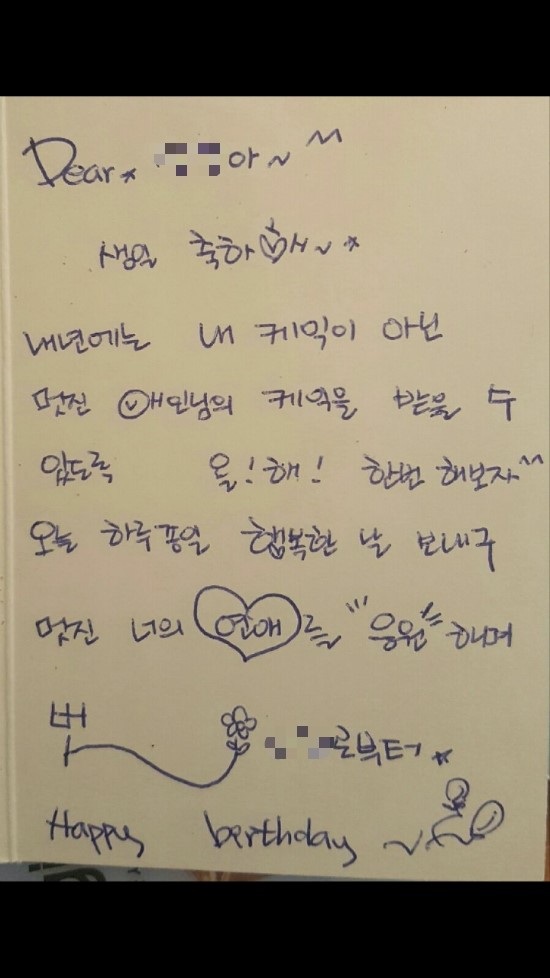 Dear 아~ ^^
생일 축하해~
내년에는 내 케익이 아닌
멋진 애인님의 케익을 받을 수
있도록 올! 해! 한번 해보자^^
오늘 하루종일 행복한 날 보내구
멋진 너의 연애를 "응원" 하며
로부터
Happy berthday ~